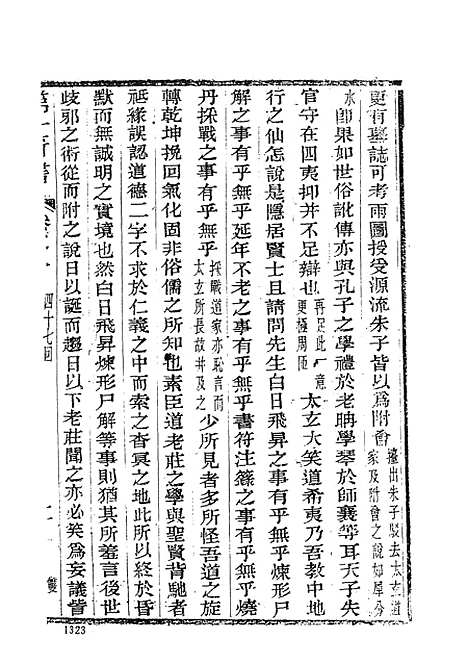 更有墓誌可考兩圖授受源流朱子皆以爲附會擡出朱子駁去太玄道家及附會之說如犀分
水卽果如世俗訛傳亦與孔子之學禮於老聃學琴於師襄等耳天子失
官守在四夷抑幷不足辯也再足此一意更極周匝太玄大笑道希夷乃吾教中地
行之仙怎說是隱居賢士且請問先生白日飛昇之事有乎無乎煉形尸
解之事有乎無乎延年不老之事有乎無乎書符注籙之事有乎無乎燒
丹採戰之事有乎無乎採戰道家亦恥言而太玄所長故井及之少所見者多所怪吾道之旋
轉乾坤挽回氣化固非俗儒之所知也素臣道老莊之學與聖賢背馳者
祗緣誤認道德二字不求於仁義之中而索之杳冥之地此所以終於昏
默而無誠明之實境也然白日飛昇煉形尸解等事則猶其所羞言後世
歧邪之術從而附之說日以誕而趨日以下老莊聞之亦必笑爲妄議皆
第一奇書
四十七回
雙
1323